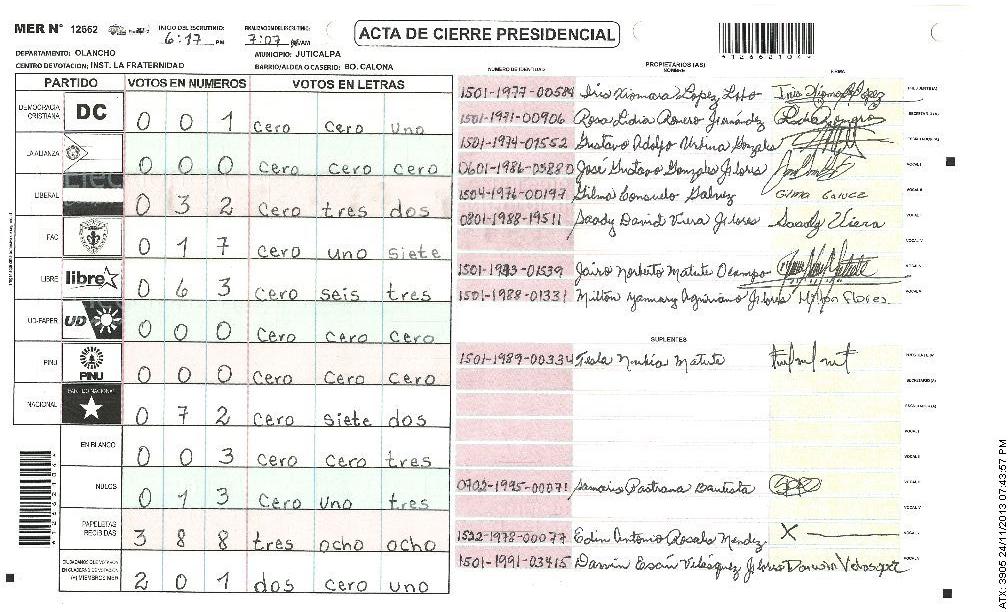 MER N° 12562 INICIO DEL ESCRUTINIO: 6:17 PM FINALIZACION DEL ESCRUTINIO: 7:07 AM
ACTA DE CIERRE PRESIDENCIAL
DEPARTAMENTO: OLANCHO MUNICIPIO: JUTICALPA
CENTRO DE VOTACION: INST. LA FRATERNIDAD BARRIO/ALDEA O CASERIO: BO. CALONA
PARTIDO VOTOS EN NUMEROS VOTOS EN LETRAS
DEMOCRACIA CRISTIANA DC 0 0 1 cero cero uno
LA ALIANZA 0 0 0 cero cero cero
LIBERAL 0 3 2 cero tres dos
FAC 0 1 7 cero uno siete
LIBRE libre 0 6 3 cero seis tres
UD-FAPER UD 0 0 0 cero cero cero
PINU PINU 0 0 0 cero cero cero
NACIONAL PARTIDO NACIONAL 0 7 2 cero siete dos
EN BLANCO 0 0 3 cero cero tres
NULOS 0 1 3 cero uno tres
PAPELETAS RECIBIDAS 3 8 8 tres ocho ocho
2 0 1 dos cero uno
NUMERO DE IDENTIDAD PROPIETARIOS (AS) NOMBRE FIRMA
1501-1977-00584 Iris Xiomara Lopez PRESIDENTE(A)
1501-1971-00906 Rosa Lidia Romero Hernández SECRETARIO(A)
1501-1974-01552 Gustavo Adolfo Urbina Gonzales
0601-1986-03880 José Gustavo Gonzales Flores VOCAL I
1504-1976-00197 Gilma Consuelo Galvez VOCAL II
0801-1988-19511 Saady David Viera Flores Saady Viera
1501-1983-01539 Jairo Norberto Matute Ocampo
1501-1988-01331 Milton Flores Milton Flores
SUPLENTES
1501-1989-00334 Tesla Matute
SECRETARIO(A)
VOCAL I
VOCAL II
0702-1995-00071 Samaria Pastrana Bautista
1522-1978-00077 Edin Antonio Rosales Mendez X
1501-1991-03415 Darwin Esaú Velásquez Flores Darwin Velasquez
ATX: 3905 24/11/2013 07:43:57 PM